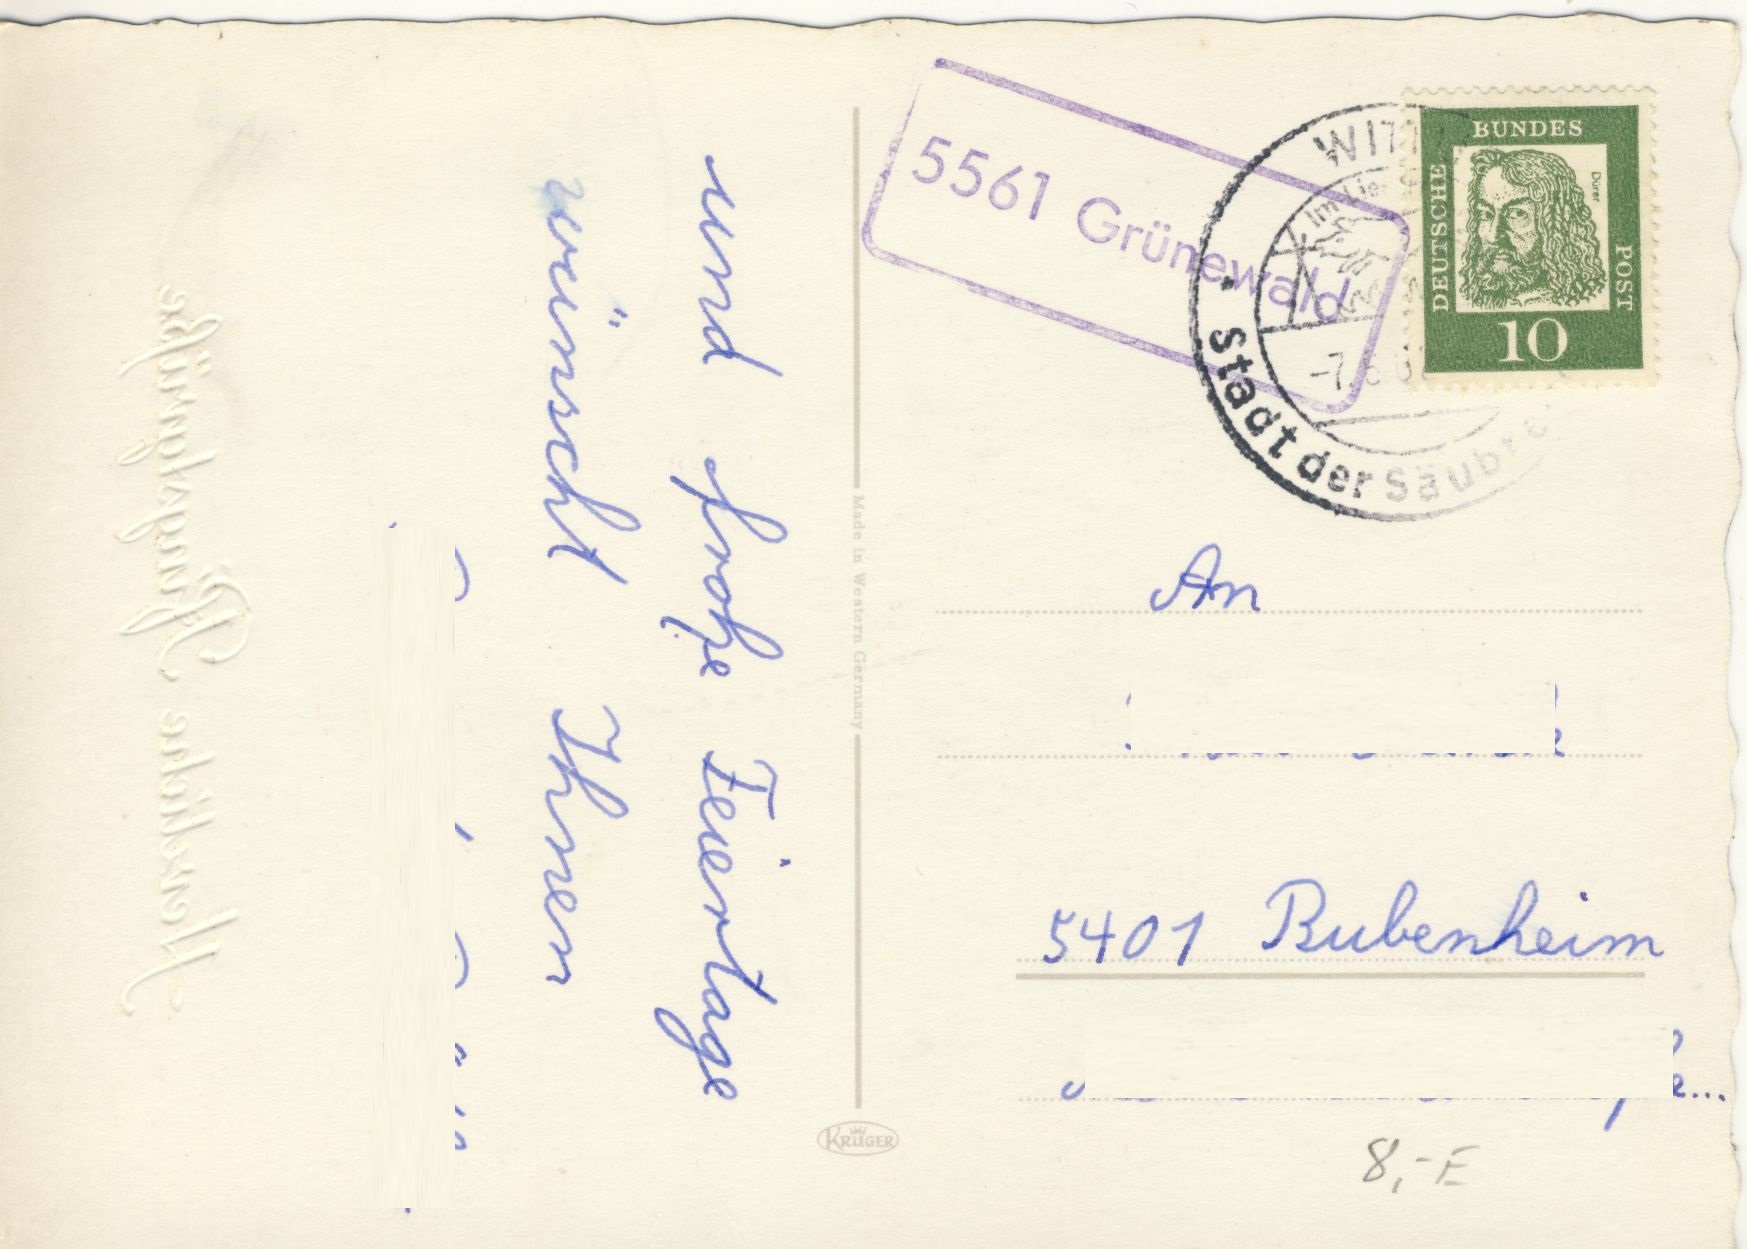 Herzliche Pfingstgrüße
und frohe Feiertage
wünscht Ihnen
Made in Western Germany
KRÜGER
5561 Grünewald
Stadt der Säubr
DEUTSCHE
BUNDES
POST
Dürer
10
An
5401 Bubenheim
8,- E